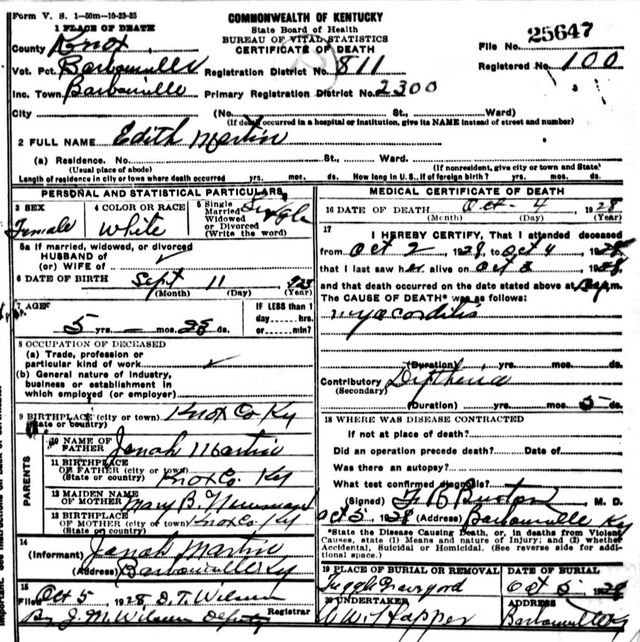 Form V. S. 1-50m-10-23-25
COMMONWEALTH OF KENTUCKY
State Board of Health
BUREAU OF VITAL STATISTICS
CERTIFICATE OF DEATH
1 PLACE OF DEATH
County Knox
File No. 25647
Vot. Pct. Barbourville
Registration District No. 811
Registered No. 100
Inc. Town Barbourville
Primary Registration District No. 2300
City (No. St., Ward)
(If death occurred in a hospital or institution, give its NAME instead of street and number)
2 FULL NAME Edith Martin
(a) Residence. No. St., Ward.
(Usual place of abode) (If nonresident, give city or town and State)
Length of residence in city or town where death occurred yrs. mos. ds. How long in U.S., if of foreign birth? yrs. mos. ds.
PERSONAL AND STATISTICAL PARTICULARS
3 SEX Female
4 COLOR OR RACE White
5 Single Married Widowed or Divorced (Write the word) Single
5a If married, widowed, or divorced
HUSBAND of
(or) WIFE of
6 DATE OF BIRTH Sept 11 923
(Month) (Day) (Year)
7 AGE 5 yrs. mos. 23 ds.
IF LESS than 1 day hrs. or min.
8 OCCUPATION OF DECEASED
(a) Trade, profession or particular kind of work
(b) General nature of industry, business or establishment in which employed (or employer)
9 BIRTHPLACE (city or town) Knox Co Ky
(State or country)
PARENTS
10 NAME OF FATHER Jonah Martin
11 BIRTHPLACE OF FATHER (city or town) Knox Co. Ky
(State or country)
12 MAIDEN NAME OF MOTHER Mary B.
13 BIRTHPLACE OF MOTHER (city or town) Knox Co Ky
(State or country)
14
(Informant) Jonah Martin
(Address) Barbourville Ky
15
Filed Oct 5, 1928 D.T. Wilson
Registrar
By J.M. Wilson Deputy
MEDICAL CERTIFICATE OF DEATH
16 DATE OF DEATH Oct- 4, 1928
(Month) (Day) (Year)
17
I HEREBY CERTIFY, That I attended deceased
from Oct 2, 1928, to Oct 4, 1928
that I last saw her alive on Oct 3, 1928
and that death occurred on the date stated above at m.
The CAUSE OF DEATH* was as follows:
myocorditis
(Duration) yrs. mos. ds.
Contributory Diptheria
(Secondary)
(Duration) yrs. mos. 5 ds.
18 WHERE WAS DISEASE CONTRACTED
If not at place of death?
Did an operation precede death? Date of
Was there an autopsy?
What test confirmed diagnosis?
(Signed) Burton, M. D.
Oct 5, 1928 (Address) Barbourville Ky
*State the Disease Causing Death, or, in deaths from Violent
Causes, state (1) Means and nature of Injury; and (2) whether
Accidental, Suicidal or Homicidal. (See reverse side for addi-
tional space.)
19 PLACE OF BURIAL OR REMOVAL
DATE OF BURIAL
Oct 5 1928
20 UNDERTAKER
ADDRESS
Hopper Barbourville Ky